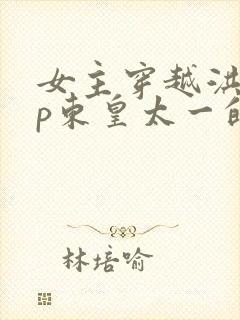 女主穿越洪
p东皇太一的
林培喻